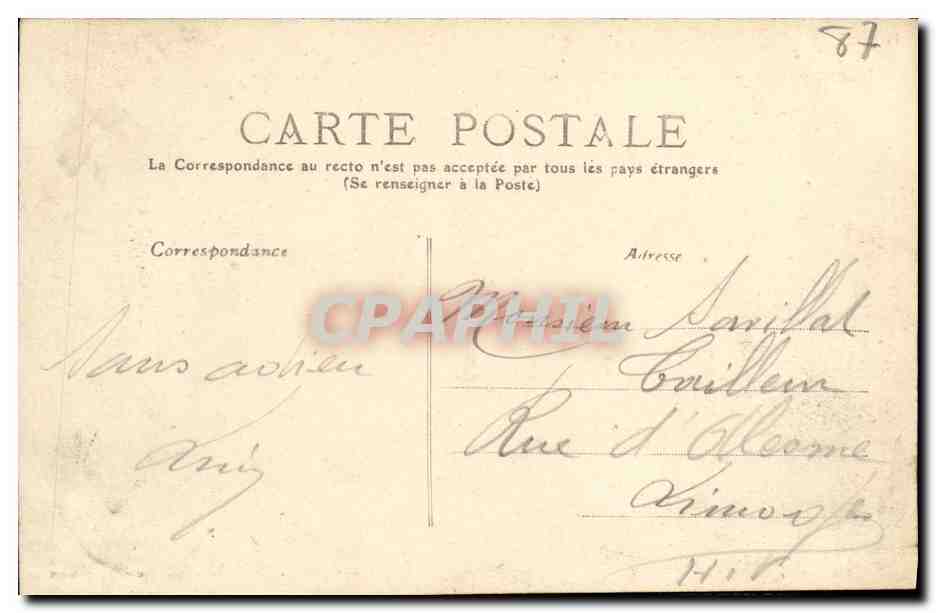 87
CARTE POSTALE
La Correspondance au recto n'est pas acceptée par tous les pays étrangers
(Se renseigner à la Poste)
Correspondance
Adresse
CPAPHIL
Monsieur
Sans adieu
Tailleur
Rue d'
Limoges
H.V.